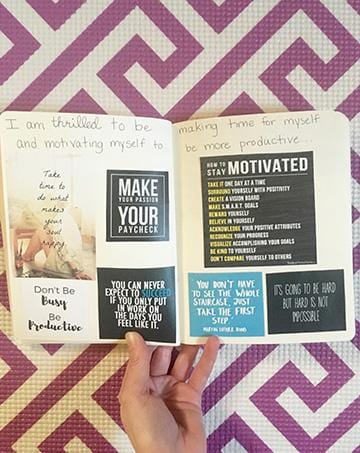 I am thrilled to be
and motivating myself to
Take
time to
do what
makes
your
soul
happy.
MAKE
YOUR PASSION
YOUR
PAYCHECK
Don't Be
Busy
Be
Productive
YOU CAN NEVER
EXPECT TO SUCCEED
IF YOU ONLY PUT
IN WORK ON
THE DAYS YOU
FEEL LIKE IT.
making time for myself
be more productive...
HOW TO
STAY MOTIVATED
TAKE IT ONE DAY AT A TIME
SURROUND YOURSELF WITH POSITIVITY
CREATE A VISION BOARD
MAKE S.M.A.R.T. GOALS
REWARD YOURSELF
BELIEVE IN YOURSELF
ACKNOWLEDGE YOUR POSITIVE ATTRIBUTES
RECOGNIZE YOUR PROGRESS
VISUALIZE ACCOMPLISHING YOUR GOALS
BE KIND TO YOURSELF
DON'T COMPARE YOURSELF TO OTHERS
YOU DON'T HAVE
TO SEE THE WHOLE
STAIRCASE, JUST
TAKE THE FIRST
STEP.
MARTIN LUTHER KING
IT'S GOING TO BE HARD
BUT HARD IS NOT
IMPOSSIBLE